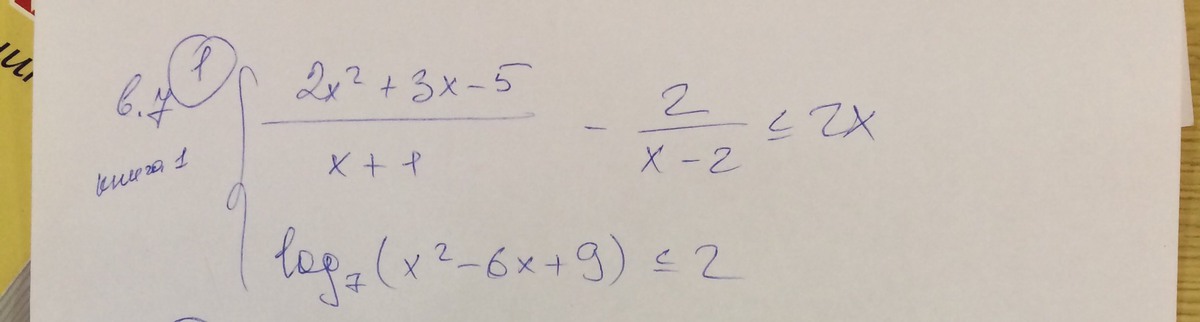 в.7 1
книга 1
{ (2x² + 3x - 5)/(x + 1) - 2/(x - 2) ≤ 2x
log₇(x² - 6x + 9) ≤ 2